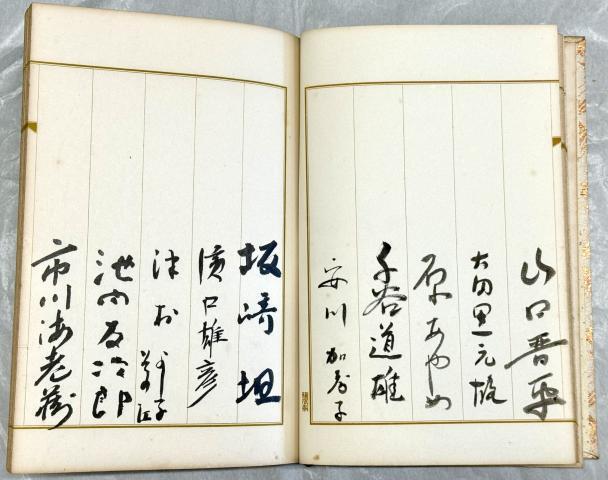 山口晋平
大田黒元雄
原あやめ
千谷道雄
安川加寿子
坂崎坦
濱口雄彦
よし子
池内友次郎
市川海老蔵